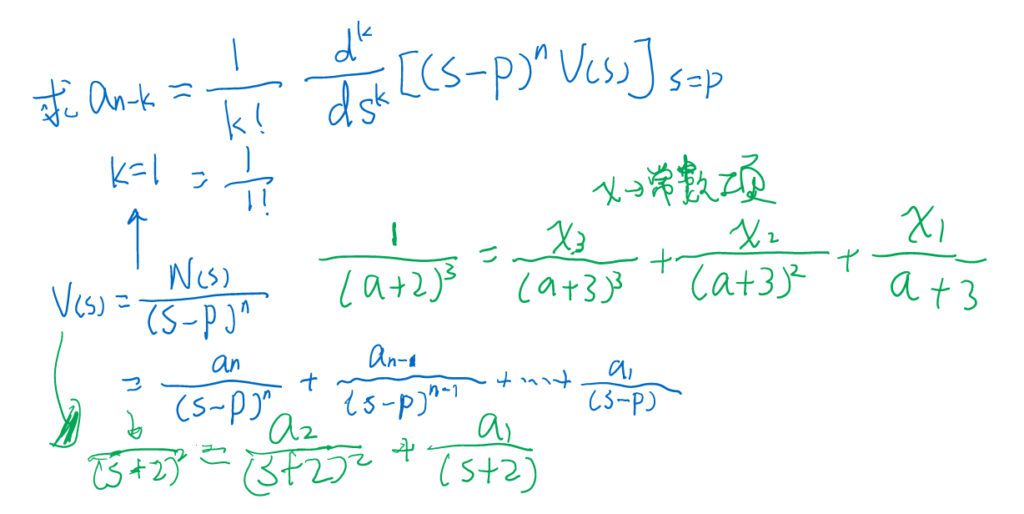 求 a_{n-k} = \frac{1}{k!} \frac{d^k}{ds^k} [(s-p)^n V(s)]_{s=p}
k=1 = \frac{1}{1!}
x→常数项
\frac{1}{(a+2)^3} = \frac{x_3}{(a+3)^3} + \frac{x_2}{(a+3)^2} + \frac{x_1}{a+3}
V(s) = \frac{N(s)}{(s-p)^n}
= \frac{a_n}{(s-p)^n} + \frac{a_{n-1}}{(s-p)^{n-1}} + ... + \frac{a_1}{(s-p)}
\frac{}{(s+2)^2} = \frac{a_2}{(s+2)^2} + \frac{a_1}{(s+2)}